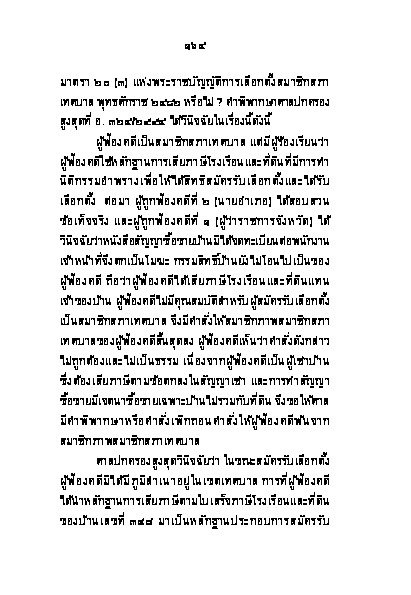 ๑๖๔
มาตรา ๒๐ (๓) แห่งพระราชบัญญัติการเลือกตั้งสมาชิกสภา
เทศบาล พุทธศักราช ๒๔๘๒ หรือไม่ ? คำพิพากษาศาลปกครอง
สูงสุดที่ อ. ๓๒๔/๒๕๕๕ ได้วินิจฉัยในเรื่องนี้ดังนี้
ผู้ฟ้องคดีเป็นสมาชิกสภาเทศบาล แต่มีผู้ร้องเรียนว่า
ผู้ฟ้องคดีใช้หลักฐานการเสียภาษีโรงเรือนและที่ดินที่มีการทำ
นิติกรรมอำพรางเพื่อให้ได้สิทธิสมัครรับเลือกตั้งและได้รับ
เลือกตั้ง ต่อมา ผู้ถูกฟ้องคดีที่ ๒ (นายอำเภอ) ได้สอบสวน
ข้อเท็จจริง และผู้ถูกฟ้องคดีที่ ๑ (ผู้ว่าราชการจังหวัด) ได้
วินิจฉัยว่าหนังสือสัญญาซื้อขายบ้านมิได้จดทะเบียนต่อพนักงาน
เจ้าหน้าที่จึงตกเป็นโมฆะ กรรมสิทธิ์บ้านยังไม่โอนไปเป็นของ
ผู้ฟ้องคดี ถือว่าผู้ฟ้องคดีได้เสียภาษีโรงเรือนและที่ดินแทน
เจ้าของบ้าน ผู้ฟ้องคดีไม่มีคุณสมบัติสำหรับผู้สมัครรับเลือกตั้ง
เป็นสมาชิกสภาเทศบาล จึงมีคำสั่งให้สมาชิกภาพสมาชิกสภา
เทศบาลของผู้ฟ้องคดีสิ้นสุดลง ผู้ฟ้องคดีเห็นว่าคำสั่งดังกล่าว
ไม่ถูกต้องและไม่เป็นธรรม เนื่องจากผู้ฟ้องคดีเป็นผู้เช่าบ้าน
ซึ่งต้องเสียภาษีตามข้อตกลงในสัญญาเช่า และการทำสัญญา
ซื้อขายมีเจตนาซื้อขายเฉพาะบ้านไม่รวมกับที่ดิน จึงขอให้ศาล
มีคำพิพากษาหรือคำสั่งเพิกถอนคำสั่งให้ผู้ฟ้องคดีพ้นจาก
สมาชิกภาพสมาชิกสภาเทศบาล
ศาลปกครองสูงสุดวินิจฉัยว่า ในขณะสมัครรับเลือกตั้ง
ผู้ฟ้องคดีมิได้มีภูมิลำเนาอยู่ในเขตเทศบาล การที่ผู้ฟ้องคดี
ได้นำหลักฐานการเสียภาษีตามใบเสร็จภาษีโรงเรือนและที่ดิน
ของบ้านเลขที่ ๓๔๘ มาเป็นหลักฐานประกอบการสมัครรับ